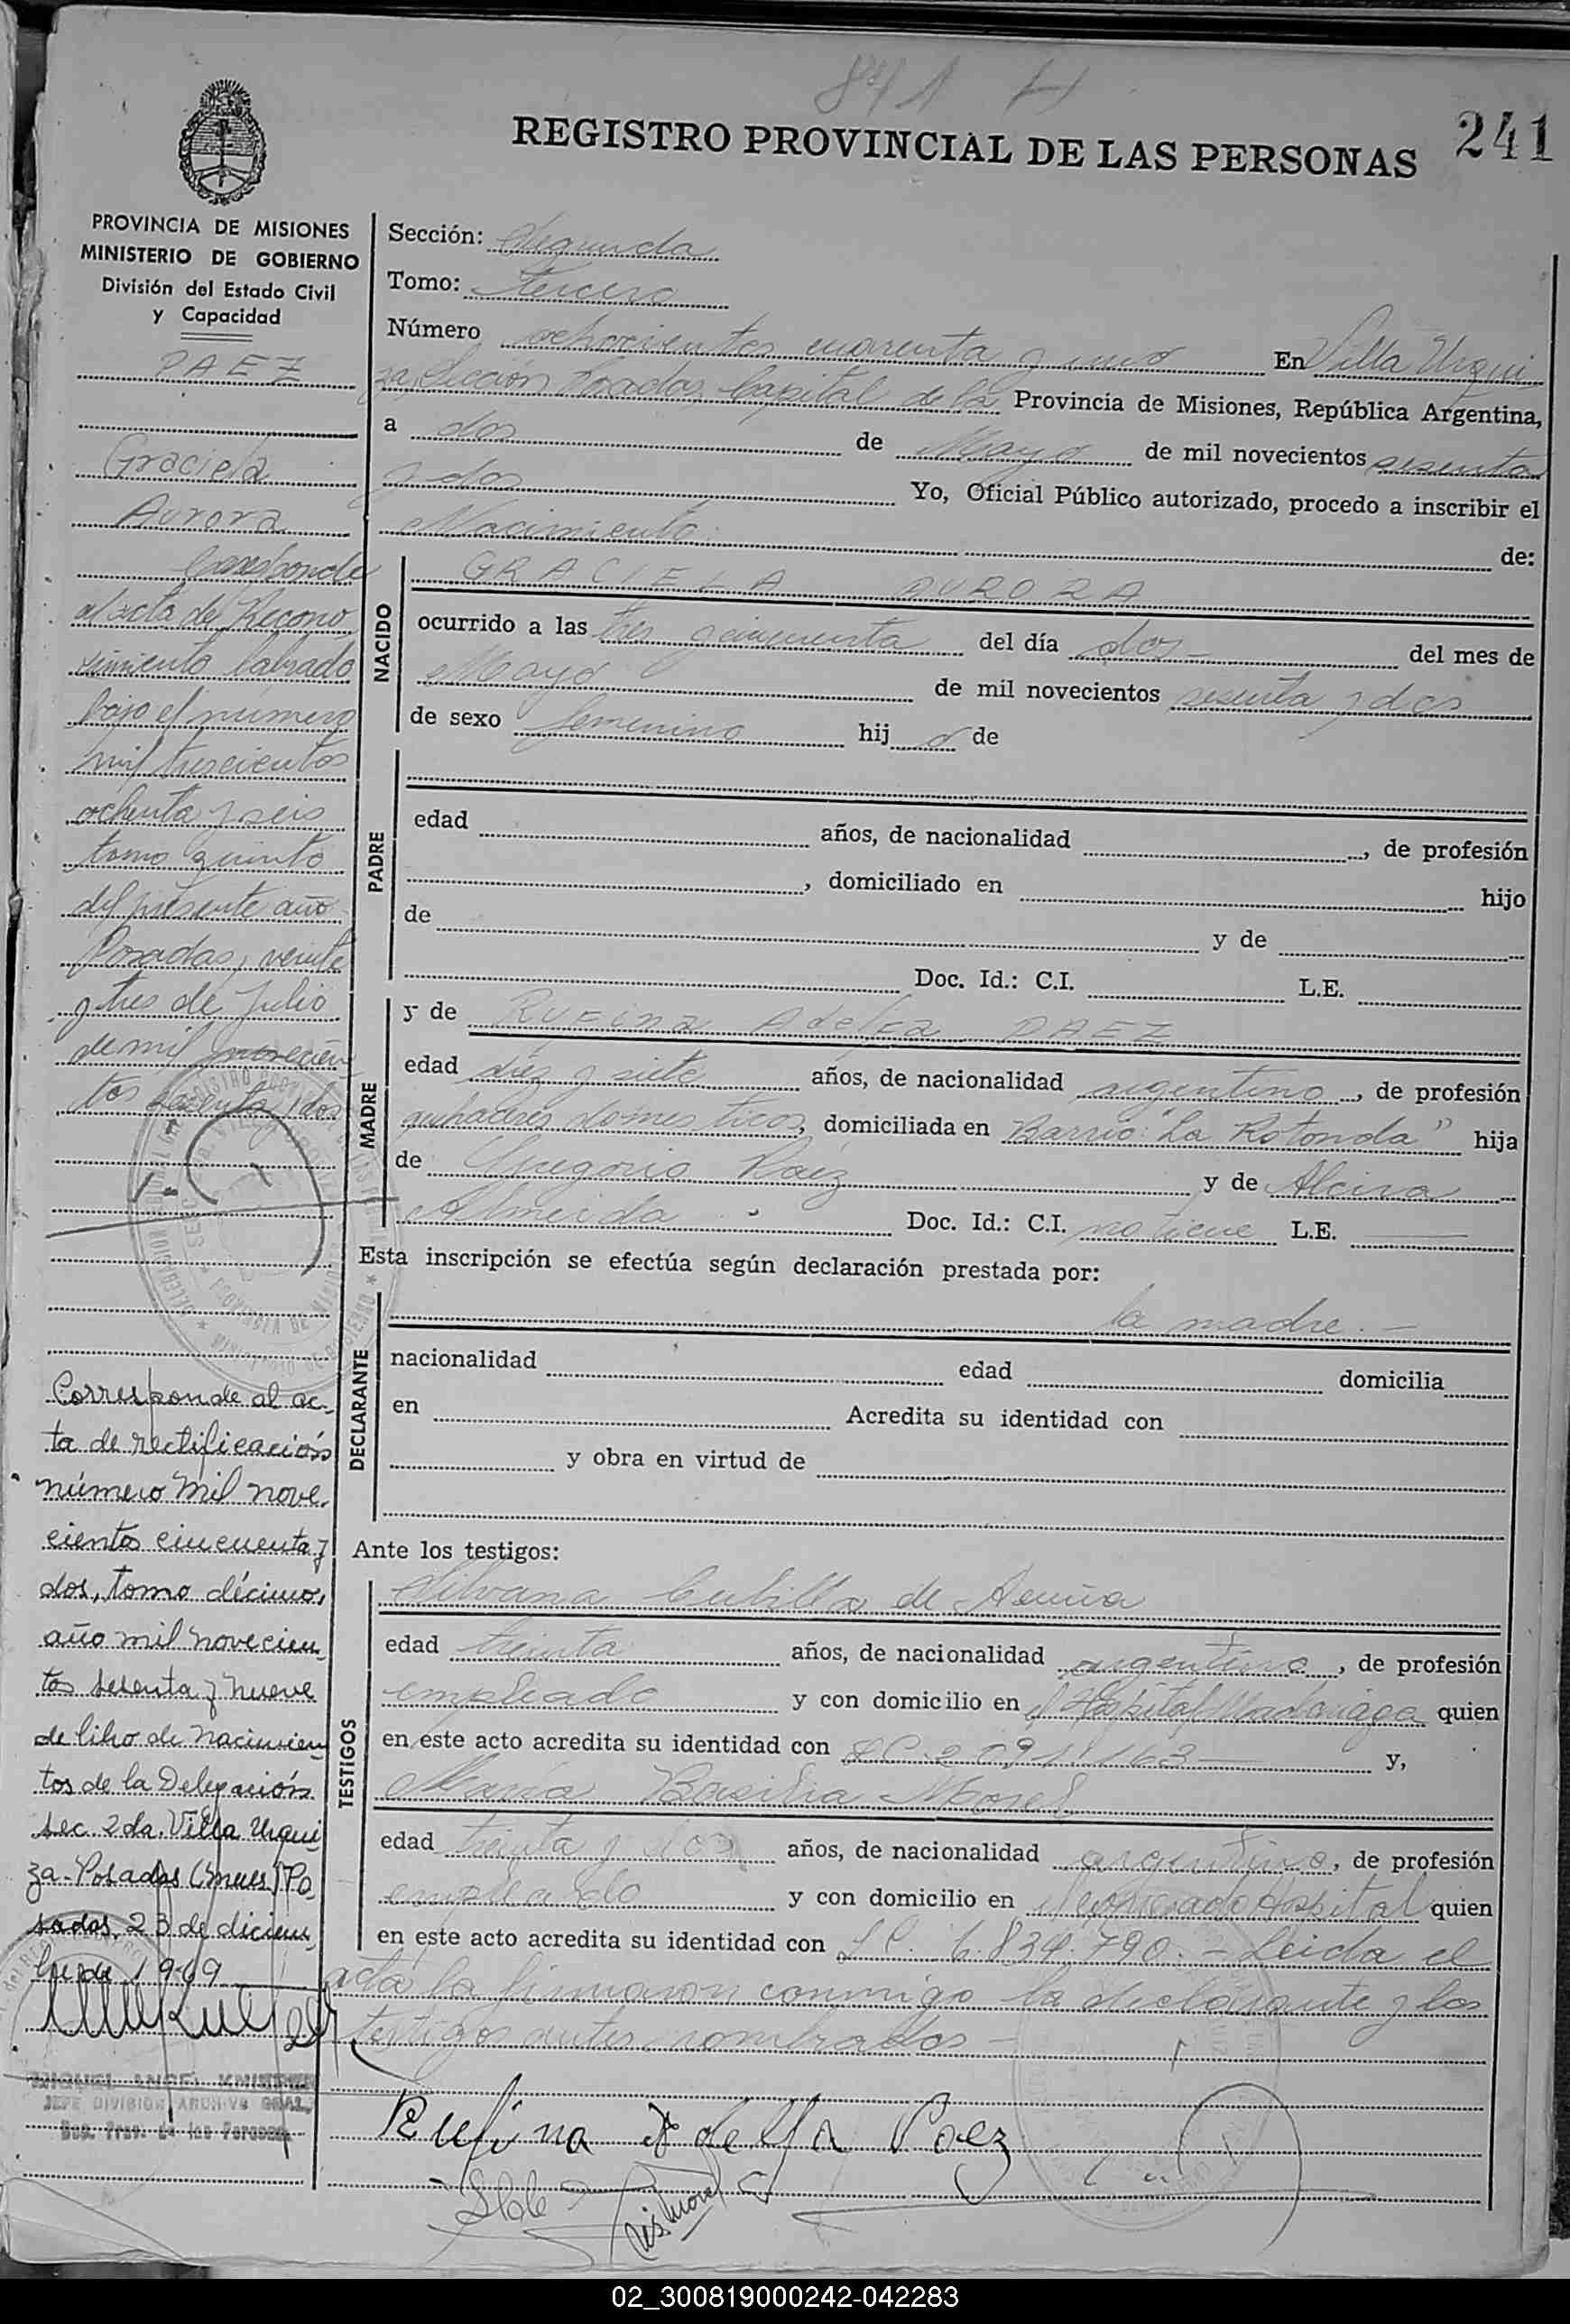 841
241
REGISTRO PROVINCIAL DE LAS PERSONAS
PROVINCIA DE MISIONES
MINISTERIO DE GOBIERNO
División del Estado Civil
y Capacidad
PAEZ
Graciela
Aurora
Corresponde
al acta de Recono
simiento labrado
bajo el número
mil trescientos
ochenta y seis
tomo quinto
del presente año
Posadas, veinte
y tres de Julio
de mil novecien
tos sesenta y dos
Corresponde al ac-
ta de rectificación
número mil nove-
cientos cincuenta y
dos, tomo décimo,
año mil novecien
tos setenta y nueve
de libro de nacimien
tos de la Delegación
sec. 2da. Villa Urqui
za-Posadas (Mnes) Po
sadas, 23 de diciem
bre de 1979
MIGUEL ANGEL
JEFE DIVISION ARCHIVO GRAL.
Reg. Prov. de las Personas
Sección: Segunda
Tomo: tercero
Número ochocientos cuarenta y uno En Villa Urqui
za, Sección Posadas, Capital de la Provincia de Misiones, República Argentina,
a dos de Mayo de mil novecientos sesenta
y dos Yo, Oficial Público autorizado, procedo a inscribir el
Nacimiento de:
NACIDO
GRACIELA AURORA
ocurrido a las tres y cincuenta del día dos- del mes de
Mayo de mil novecientos sesenta y dos
de sexo femenino hij a de
PADRE
edad años, de nacionalidad , de profesión
, domiciliado en hijo
de y de
Doc. Id.: C.I. L.E.
MADRE
y de Rufina Adelfa PAEZ
edad diez y siete años, de nacionalidad argentina, de profesión
quehaceres domesticos, domiciliada en Barrio "La Rotonda" hija
de Gregorio Paéz y de Alcira
Almeida Doc. Id.: C.I. no tiene L.E.
Esta inscripción se efectúa según declaración prestada por:
la madre.-
DECLARANTE
nacionalidad edad domicilia
en Acredita su identidad con
y obra en virtud de
Ante los testigos:
TESTIGOS
Silvana Cubilla de
edad treinta años, de nacionalidad argentina, de profesión
empleada y con domicilio en el Hospital Madariaga quien
en este acto acredita su identidad con y,
María Basilia Morel
edad treinta y dos años, de nacionalidad argentina, de profesión
empleada y con domicilio en Hospital quien
en este acto acredita su identidad con L.C. 6.834.790.- Leida el
acta la firmaron conmigo la declarante y los
testigos antes nombrados-
Rufina Adelfa Paez
02_300819000242-042283